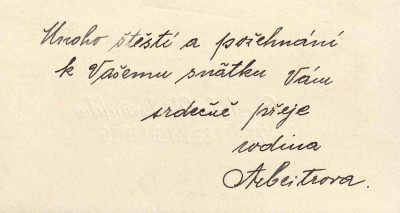 Mnoho štěstí a požehnání
k Vašemu sňatku Vám
srdečně přeje
rodina
Arbeitrova.